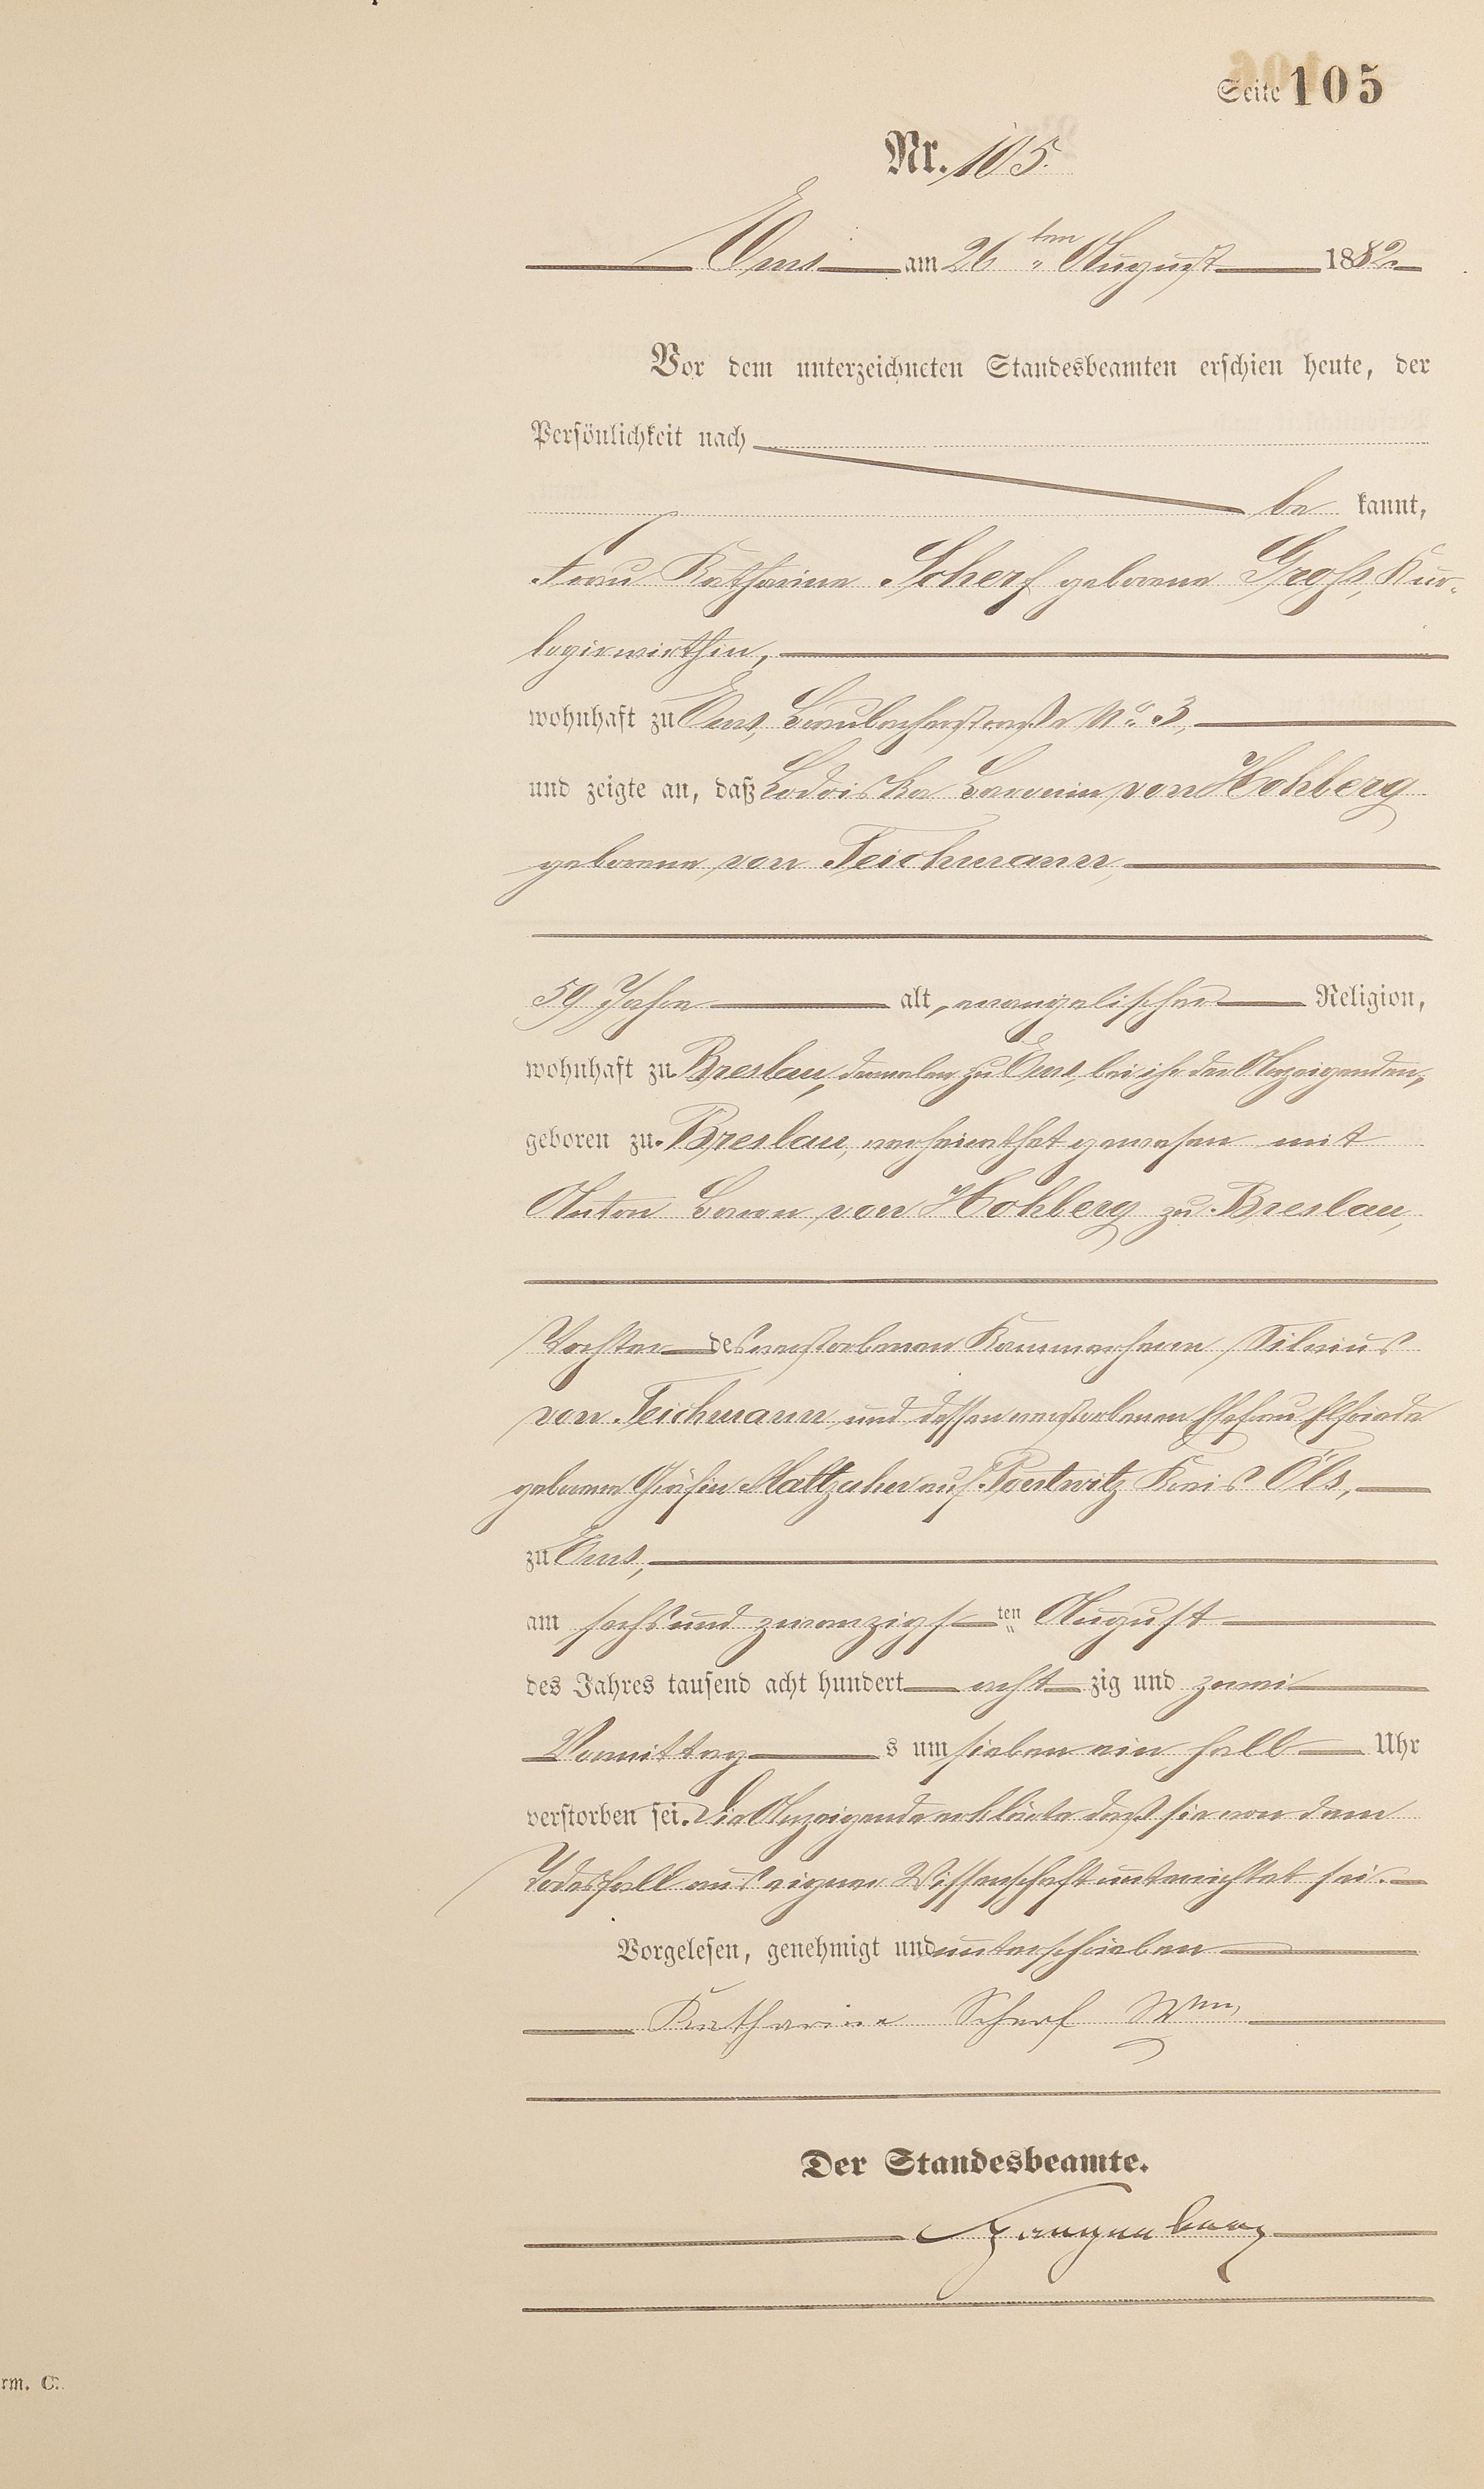 Seite 105
Nr. 105.
Ems am 26ten August 1882
Vor dem unterzeichneten Standesbeamten erschien heute, der
Persönlichkeit nach
be kannt,
Frau Katharina Scherf geborene Groß, Kur-
logirwirthin,
wohnhaft zu Ems, Graubacherstraße No. 3,
und zeigte an, daß Lodoiska Baronin von Hohberg
geborene von Teichmann,
59 Jahre alt, evangelischer Religion,
wohnhaft zu Breslau, dermalen zu Ems, bei ihr der Anzeigenden,
geboren zu Breslau, verheirathet gewesen mit
Anton Baron von Hohberg zu Breslau,
Tochter des verstorbenen Kammerherrn Silvius
von Teichmann und dessen verstorbenen Ehefrau Elfriede
geborene Gräfin Maltzahn auf Kreis Öls,
zu Ems,
am sechsundzwanzigsten August
des Jahres tausend acht hundert acht zig und zwei
Vormittag s um sieben ein halb Uhr
verstorben sei. Die Anzeigende erklärte daß sie von dem
Todesfall aus eigner Wissenschaft unterrichtet sei.
Vorgelesen, genehmigt und unterschrieben
Katharina Scherf Wwe
Der Standesbeamte.
rm. C.